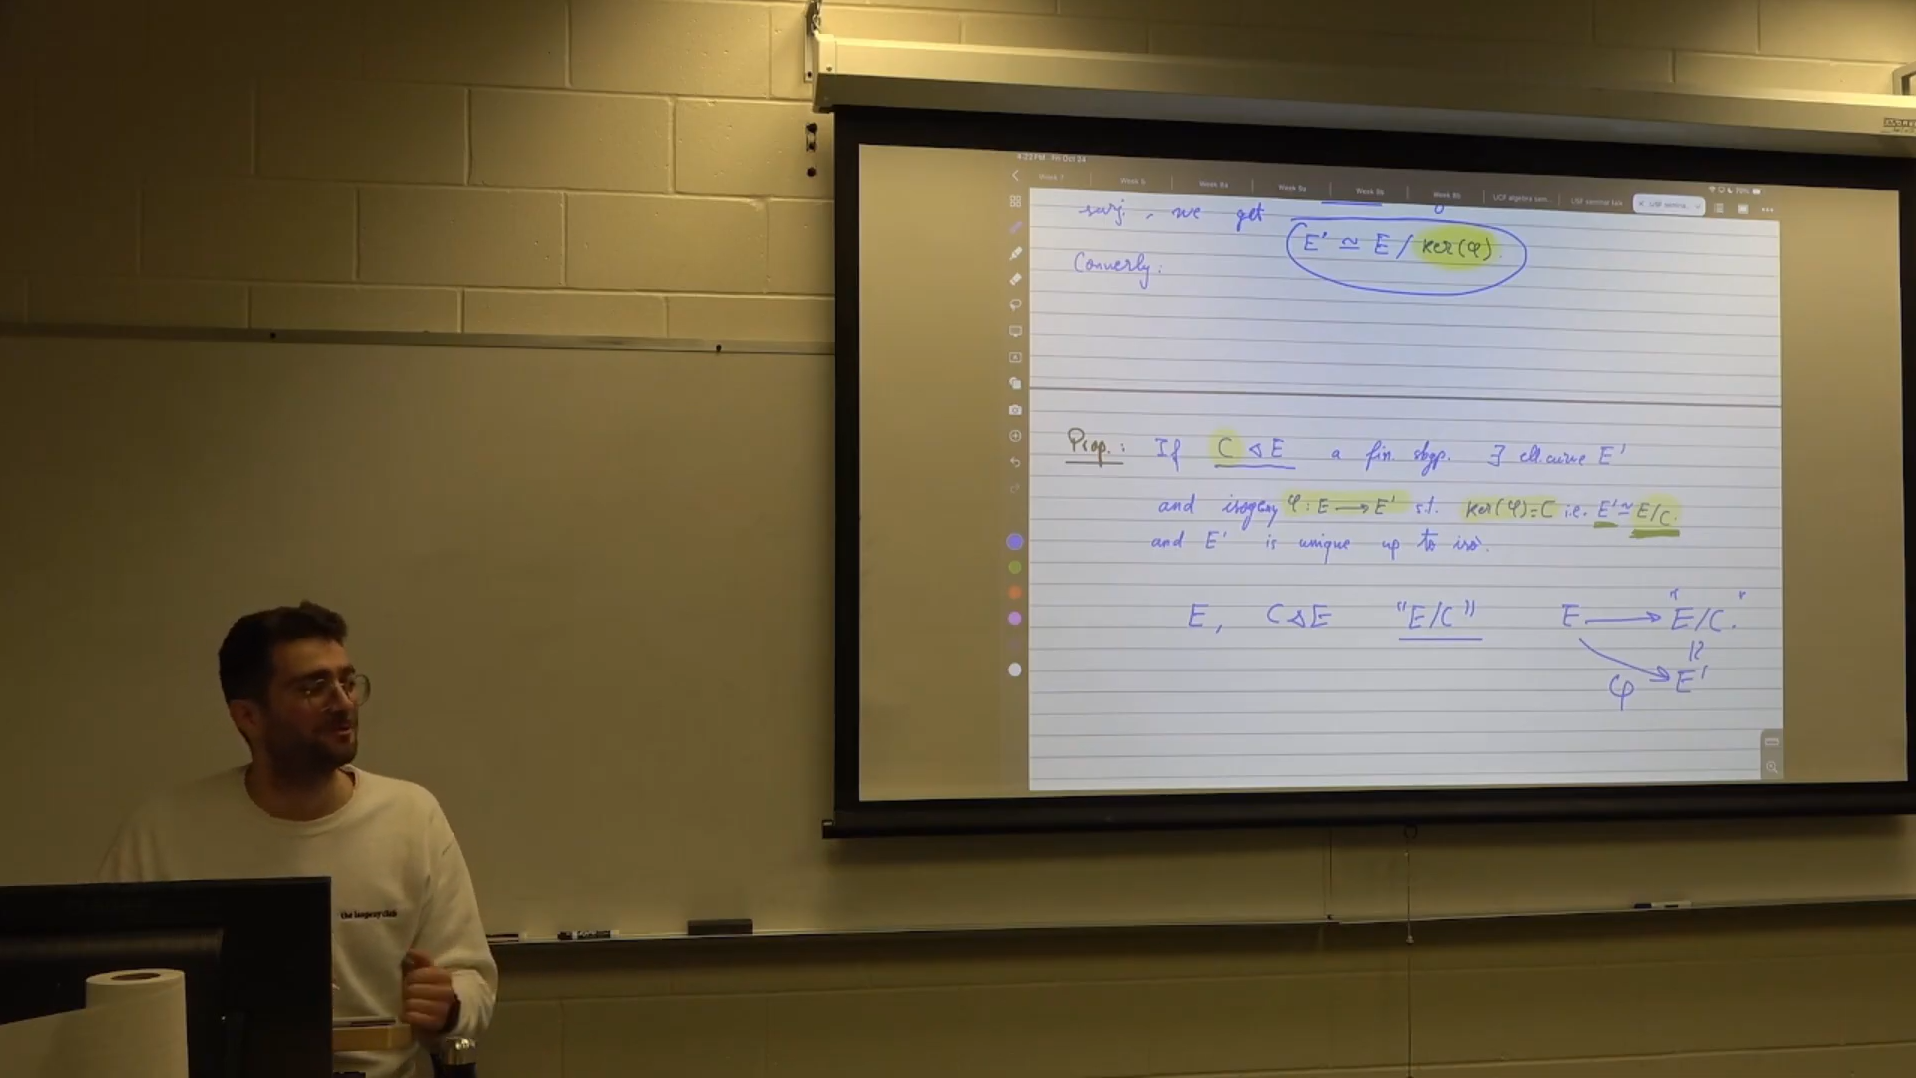 4:22 PM Fri Oct 24
Week 7 Week 8 Week 8a Week 9a Week 9b Week 8b UCF algebra sem... USF seminar talk × USF semina...
70%
surj., we get
E' ≃ E / ker(φ).
Converly:
Prop.: If C ⊲ E a fin. sbgp. ∃ ell.curve E'
and isogeny φ: E ⟶ E' s.t. ker(φ)=C i.e. E' ≃ E/C.
and E' is unique up to iso.
E, C ⊲ E "E/C" E ⟶ "E/C".
φ E'
the isogeny club